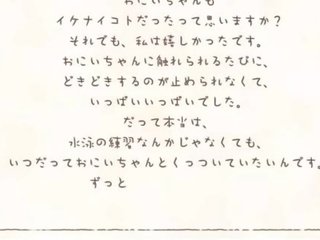 おにいちゃんも
イケナイコトだったって思いますか？
それでも、私は嬉しかったです。
おにいちゃんに触れられるたびに、
どきどきするのが止められなくて、
いっぱいいっぱいでした。
だって本当は、
水泳の練習なんかじゃなくても、
いつだっておにいちゃんとくっついていたいんです。
ずっと